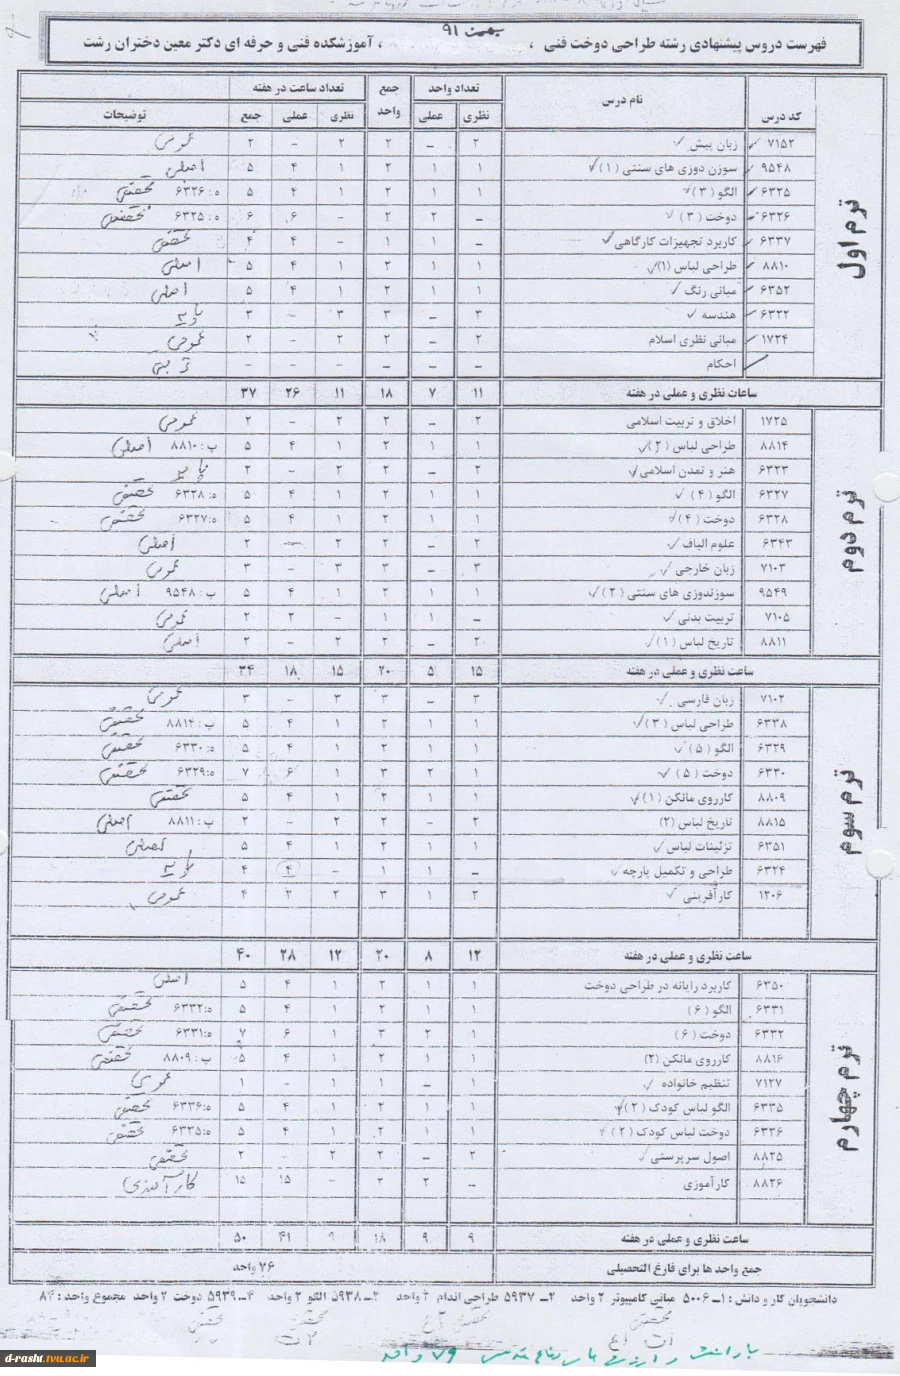 بهمن ۹۱
فهرست دروس پیشنهادی رشته طراحی دوخت فنی ، ، آموزشکده فنی و حرفه ای دکتر معین دختران رشت
کد درس نام درس تعداد واحد جمع واحد تعداد ساعت در هفته توضیحات
نظری عملی نظری عملی جمع
ترم اول
۷۱۵۲ زبان پیش ۲ – ۲ ۲ – ۲ عمومی
۹۵۴۸ سوزن دوزی های سنتی (۱) ۱ ۱ ۲ ۱ ۴ ۵ اصلی
۶۳۲۵ الگو (۳) ۱ ۱ ۲ ۱ ۴ ۵ ه: ۶۳۲۶ تخصصی
۶۳۲۶ دوخت (۳) – ۲ ۲ – ۶ ۶ ه: ۶۳۲۵ تخصصی
۶۳۳۷ کاربرد تجهیزات کارگاهی – ۱ ۱ – ۴ ۴ تخصصی
۸۸۱۰ طراحی لباس (۱) ۱ ۱ ۲ ۱ ۴ ۵ اصلی
۶۳۵۲ مبانی رنگ ۱ ۱ ۲ ۱ ۴ ۵ اصلی
۶۳۲۲ هندسه ۳ – ۳ ۳ – ۳ پایه
۱۷۲۴ مبانی نظری اسلام ۲ – ۲ ۲ – ۲ عمومی
احکام – – – – – – تربیتی
ساعات نظری و عملی در هفته ۱۱ ۷ ۱۸ ۱۱ ۲۶ ۳۷
ترم دوم
۱۷۲۵ اخلاق و تربیت اسلامی ۲ – ۲ ۲ – ۲ عمومی
۸۸۱۴ طراحی لباس (۲) ۱ ۱ ۲ ۱ ۴ ۵ پ: ۸۸۱۰ اصلی
۶۳۲۳ هنر و تمدن اسلامی ۲ – ۲ ۲ – ۲ پایه
۶۳۲۷ الگو (۴) ۱ ۱ ۲ ۱ ۴ ۵ ه: ۶۳۲۸ تخصصی
۶۳۲۸ دوخت (۴) ۱ ۱ ۲ ۱ ۴ ۵ ه: ۶۳۲۷ تخصصی
۶۳۴۳ علوم الیاف ۲ – ۲ ۲ – ۲ اصلی
۷۱۰۳ زبان خارجی ۳ – ۳ ۳ – ۳ عمومی
۹۵۴۹ سوزندوزی های سنتی (۲) ۱ ۱ ۲ ۱ ۴ ۵ پ: ۹۵۴۸ اصلی
۷۱۰۵ تربیت بدنی – ۱ ۱ – ۲ ۲ عمومی
۸۸۱۱ تاریخ لباس (۱) ۲ – ۲ ۲ – ۲ اصلی
ساعت نظری و عملی در هفته ۱۵ ۵ ۲۰ ۱۵ ۱۸ ۳۴
ترم سوم
۷۱۰۲ زبان فارسی ۳ – ۳ ۳ – ۳ عمومی
۶۳۳۸ طراحی لباس (۳) ۱ ۱ ۲ ۱ ۴ ۵ پ: ۸۸۱۴ تخصصی
۶۳۲۹ الگو (۵) ۱ ۱ ۲ ۱ ۴ ۵ ه: ۶۳۳۰ تخصصی
۶۳۳۰ دوخت (۵) ۱ ۲ ۳ ۱ ۶ ۷ ه: ۶۳۲۹ تخصصی
۸۸۰۹ کارروی مانکن (۱) ۱ ۱ ۲ ۱ ۴ ۵ تخصصی
۸۸۱۵ تاریخ لباس (۲) ۲ – ۲ ۲ – ۲ پ: ۸۸۱۱ اصلی
۶۳۵۱ تزئینات لباس ۱ ۱ ۲ ۱ ۴ ۵ اصلی
۶۳۲۴ طراحی و تکمیل پارچه – ۱ ۱ – ۴ ۴ پایه
۱۲۰۶ کارآفرینی ۲ ۱ ۳ ۲ ۲ ۴ عمومی
ساعت نظری و عملی در هفته ۱۲ ۸ ۲۰ ۱۲ ۲۸ ۴۰
ترم چهارم
۶۳۵۰ کاربرد رایانه در طراحی دوخت ۱ ۱ ۲ ۱ ۴ ۵ اصلی
۶۳۳۱ الگو (۶) ۱ ۱ ۲ ۱ ۴ ۵ ه: ۶۳۳۲ تخصصی
۶۳۳۲ دوخت (۶) ۱ ۲ ۳ ۱ ۶ ۷ ه: ۶۳۳۱ تخصصی
۸۸۱۶ کارروی مانکن (۲) ۱ ۱ ۲ ۱ ۴ ۵ پ: ۸۸۰۹ تخصصی
۷۱۲۷ تنظیم خانواده ۱ – ۱ ۱ – ۱ عمومی
۶۳۳۵ الگو لباس کودک (۲) ۱ ۱ ۲ ۱ ۴ ۵ ه: ۶۳۳۶ تخصصی
۶۳۳۶ دوخت لباس کودک (۲) ۱ ۱ ۲ ۱ ۴ ۵ ه: ۶۳۳۵ تخصصی
۸۸۲۵ اصول سرپرستی ۲ – ۲ ۲ – ۲ تخصصی
۸۸۲۶ کارآموزی – ۲ ۲ – ۱۵ ۱۵ کارآموزی
ساعت نظری و عملی در هفته ۹ ۹ ۱۸ ۹ ۴۱ ۵۰
جمع واحد ها برای فارغ التحصیلی ۷۶ واحد
دانشجویان کار و دانش: ۱– ۵۰۰۶ مبانی کامپیوتر ۲ واحد ۲– ۵۹۳۷ طراحی اندام ۲ واحد ۳– ۵۹۳۸ الگو ۲ واحد ۴– ۵۹۳۹ دوخت ۲ واحد مجموع واحد: ۸۴
d-rasht.tvu.ac.ir